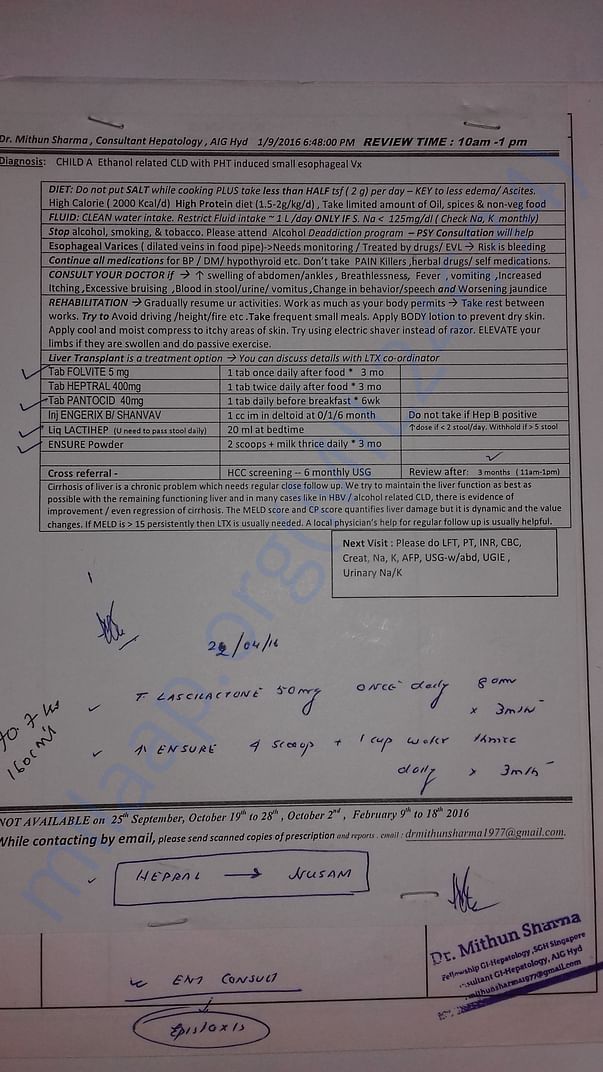 Dr. Mithun Sharma , Consultant Hepatology , AIG Hyd 1/9/2016 6:48:00 PM REVIEW TIME : 10am -1 pm
Diagnosis: CHILD A Ethanol related CLD with PHT induced small esophageal Vx
DIET: Do not put SALT while cooking PLUS take less than HALF tsf ( 2 g) per day – KEY to less edema/ Ascites.
High Calorie ( 2000 Kcal/d) High Protein diet (1.5-2g/kg/d) , Take limited amount of Oil, spices & non-veg food
FLUID: CLEAN water intake. Restrict Fluid intake ~ 1 L /day ONLY IF S. Na < 125mg/dl ( Check Na, K monthly)
Stop alcohol, smoking, & tobacco. Please attend Alcohol Deaddiction program – PSY Consultation will help
Esophageal Varices ( dilated veins in food pipe)-> Needs monitoring / Treated by drugs/ EVL → Risk is bleeding
Continue all medications for BP / DM/ hypothyroid etc. Don't take PAIN Killers ,herbal drugs/ self medications.
CONSULT YOUR DOCTOR if → ↑ swelling of abdomen/ankles , Breathlessness, Fever , vomiting ,Increased
Itching ,Excessive bruising ,Blood in stool/urine/ vomitus ,Change in behavior/speech and Worsening jaundice
REHABILITATION → Gradually resume ur activities. Work as much as your body permits → Take rest between
works. Try to Avoid driving /height/fire etc .Take frequent small meals. Apply BODY lotion to prevent dry skin.
Apply cool and moist compress to itchy areas of skin. Try using electric shaver instead of razor. ELEVATE your
limbs if they are swollen and do passive exercise.
Liver Transplant is a treatment option → You can discuss details with LTX co-ordinator
Tab FOLVITE 5 mg 1 tab once daily after food * 3 mo
Tab HEPTRAL 400mg 1 tab twice daily after food * 3 mo
Tab PANTOCID 40mg 1 tab daily before breakfast * 6wk
Inj ENGERIX B/ SHANVAV 1 cc im in deltoid at 0/1/6 month Do not take if Hep B positive
Liq LACTIHEP (U need to pass stool daily) 20 ml at bedtime ↑dose if < 2 stool/day. Withhold if > 5 stool
ENSURE Powder 2 scoops + milk thrice daily * 3 mo
Cross referral - HCC screening -- 6 monthly USG Review after: 3 months ( 11am-1pm)
Cirrhosis of liver is a chronic problem which needs regular close follow up. We try to maintain the liver function as best as
possible with the remaining functioning liver and in many cases like in HBV / alcohol related CLD, there is evidence of
improvement / even regression of cirrhosis. The MELD score and CP score quantifies liver damage but it is dynamic and the value
changes. If MELD is > 15 persistently then LTX is usually needed. A local physician's help for regular follow up is usually helpful.
Next Visit : Please do LFT, PT, INR, CBC,
Creat, Na, K, AFP, USG-w/abd, UGIE ,
Urinary Na/K
/04/16
T. LASCILACTONE 50mg ONCE daily 8am
x 3mth
70.7 Ks
160cmt
↑ ENSURE 4 scoop + 1 cup water thrice
daily x 3mth
NOT AVAILABLE on 25th September, October 19th to 28th , October 2nd , February 9th to 18th 2016
While contacting by email, please send scanned copies of prescription and reports . email : drmithunsharma1977@gmail.com.
HEPRAL → NUSAM
Dr. Mithun Sharma
Fellowship GI-Hepatology ,SGH Singapore
Consultant GI-Hepatology, AIG Hyd
mithunsharma1977@gmail.com
ENT CONSULT
Epistaxis